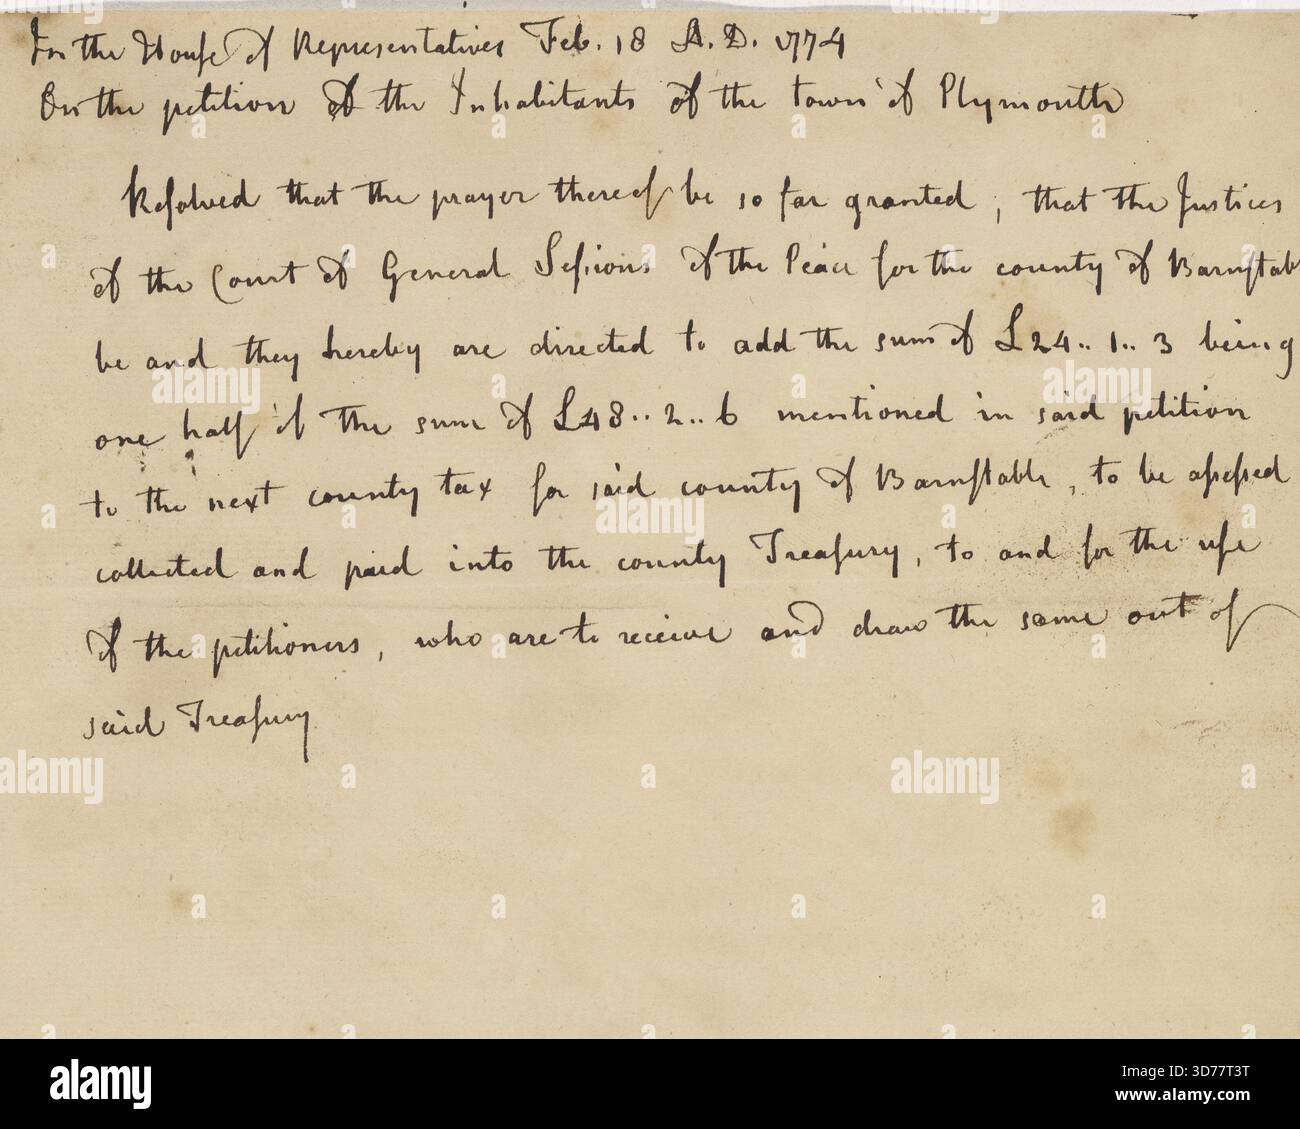 In the House of Representatives Feb. 18 A.D. 1774
On the petition of the Inhabitants of the town of Plymouth
Resolved that the prayer thereof be so far granted, that the Justices
of the Court of General Sessions of the Peace for the county of Barnstab
be and they hereby are directed to add the sum of £24..1..3 being
one half of the sum of £48..2..6 mentioned in said petition
to the next county tax for said county of Barnstable, to be assessed
collected and paid into the county Treasury, to and for the use
of the petitioners, who are to receive and draw the same out of
said Treasury
alamy
Image ID: 3D77T3T
www.alamy.com